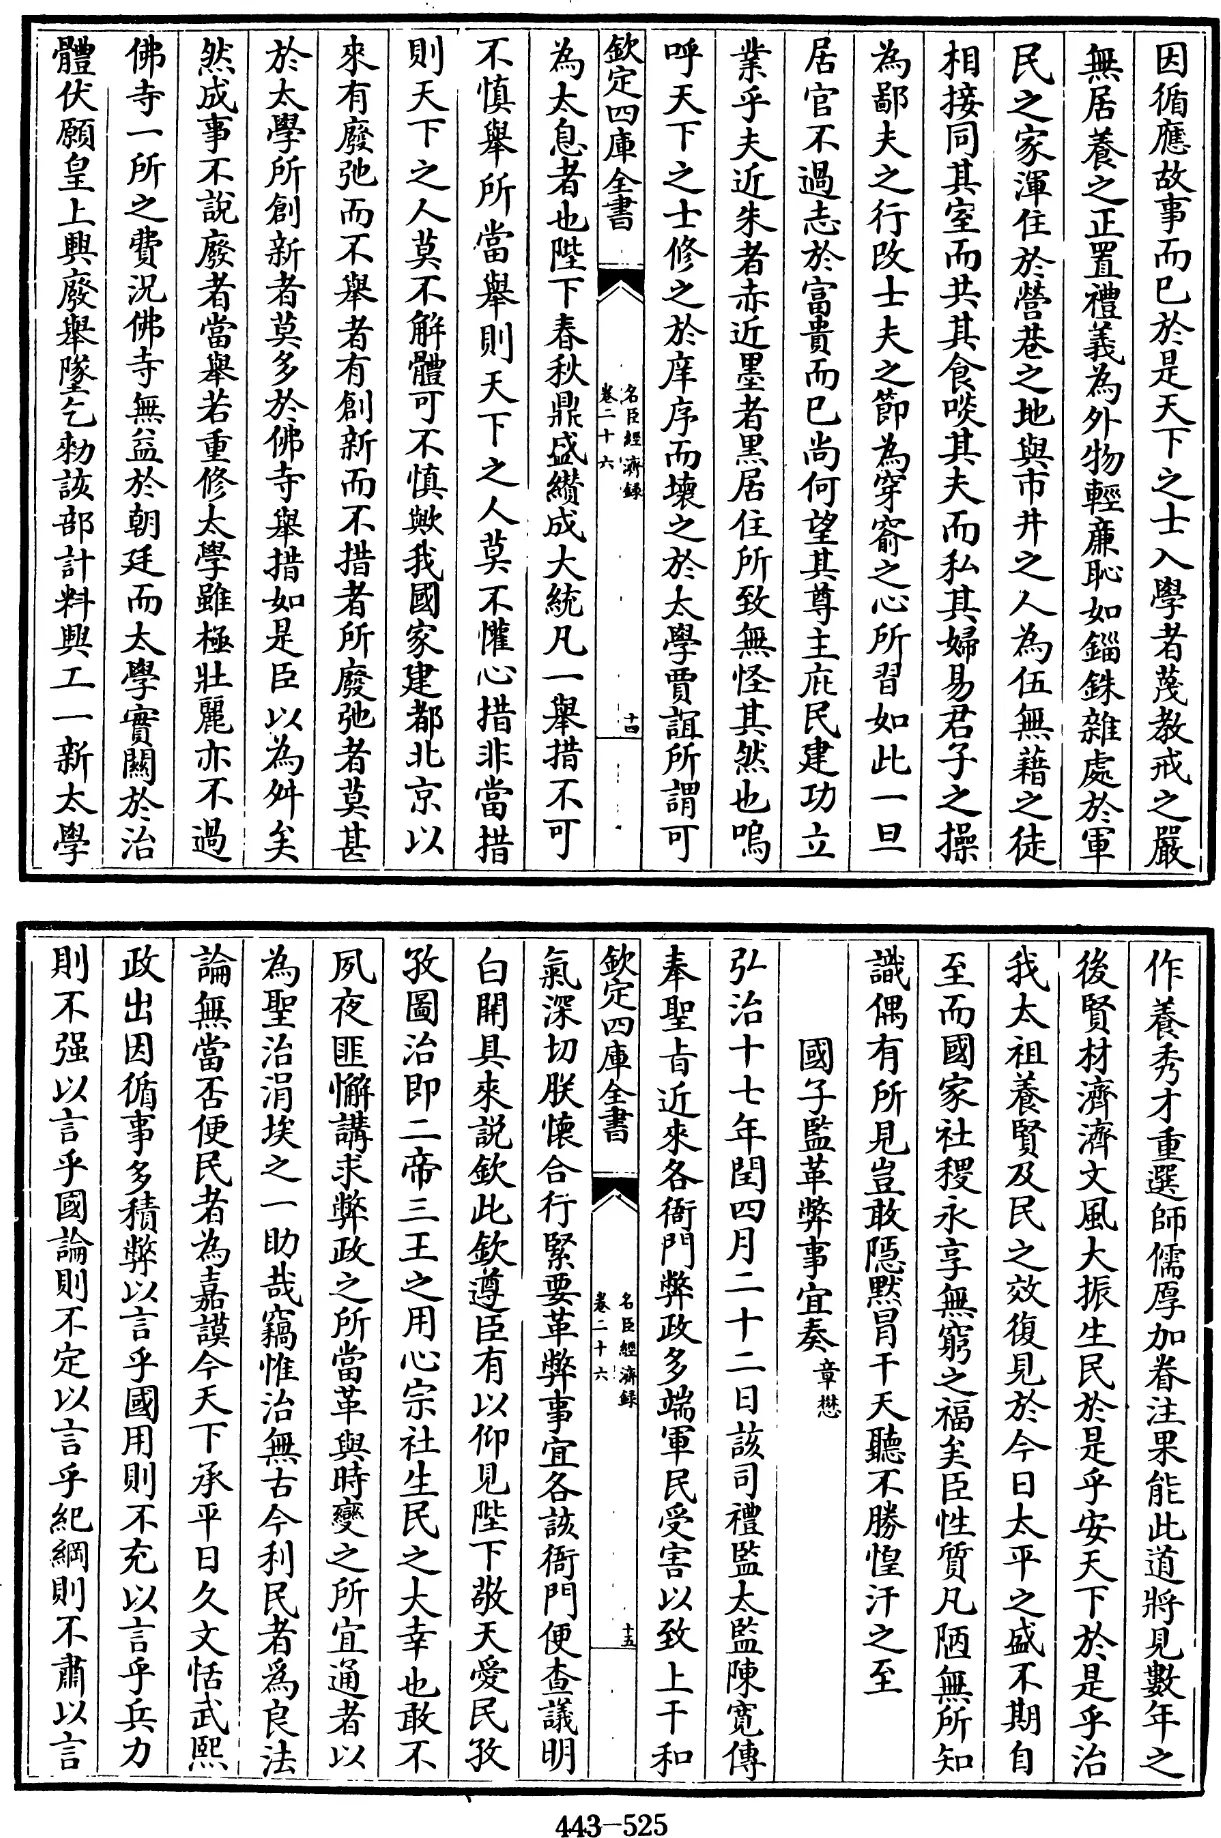 因循應故事而已於是天下之士入學者蔑教戒之嚴
無居養之正置禮義為外物輕廉恥如錙銖雜處於軍
民之家渾住於營巷之地與市井之人為伍無藉之徒
相接同其室而共其食啖其夫而私其婦易君子之操
為鄙夫之行改士夫之節為穿窬之心所習如此一旦
居官不過志於富貴而已尚何望其尊主庇民建功立
業乎夫近朱者赤近墨者黑居住所致無怪其然也嗚
呼天下之士修之於庠序而壞之於太學賈誼所謂可
欽定四庫全書
名臣經濟録
卷二十六
十四
為太息者也陛下春秋鼎盛纘成大統凡一舉措不可
不慎舉所當舉則天下之人莫不懽心措非當措
則天下之人莫不解體可不慎歟我國家建都北京以
來有廢弛而不舉者有創新而不措者所廢弛者莫甚
於太學所創新者莫多於佛寺舉措如是臣以為舛矣
然成事不說廢者當舉若重修太學雖極壯麗亦不過
佛寺一所之費況佛寺無益於朝廷而太學實關於治
體伏願皇上興廢舉墜乞勑該部計料興工一新太學
作養秀才重選師儒厚加眷注果能此道將見數年之
後賢材濟濟文風大振生民於是乎安天下於是乎治
我太祖養賢及民之效復見於今日太平之盛不期自
至而國家社稷永享無窮之福矣臣性質凡陋無所知
識偶有所見豈敢隱默冒干天聽不勝惶汗之至
國子監革弊事宜奏 章懋
弘治十七年閏四月二十二日該司禮監太監陳寬傳
奉聖旨近來各衙門弊政多端軍民受害以致上干和
欽定四庫全書
名臣經濟録
卷二十六
十五
氣深切朕懷合行緊要革弊事宜各該衙門便查議明
白開具來說欽此欽遵臣有以仰見陛下敬天愛民孜
孜圖治即二帝三王之用心宗社生民之大幸也敢不
夙夜匪懈講求弊政之所當革與時變之所宜通者以
為聖治涓埃之一助哉竊惟治無古今利民者為良法
論無當否便民者為嘉謨今天下承平日久文恬武熙
政出因循事多積弊以言乎國用則不充以言乎兵力
則不强以言乎國論則不定以言乎紀綱則不肅以言
443-525